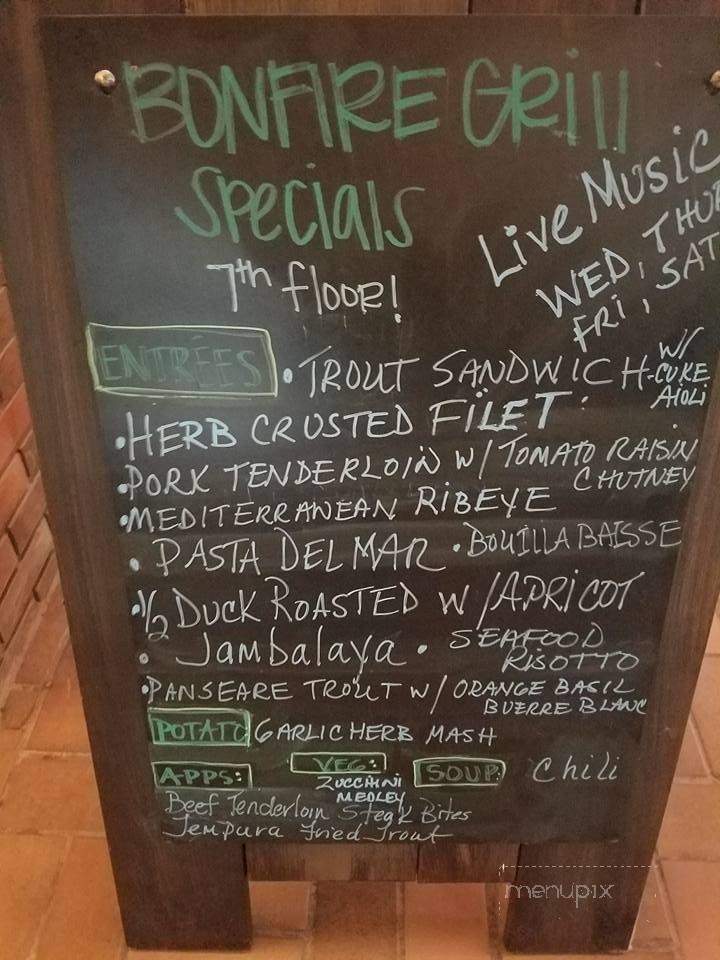 BONFIRE GRill
Specials
7th floor!
Live Music
WED, THUR
FRI, SAT
ENTRÉES
• TROUT SANDWICH - W/
CUKE
AIOLI
• HERB CRUSTED FILET
• PORK TENDERLOIN W/ TOMATO RAISIN
CHUTNEY
• MEDITERRANEAN RIBEYE
• PASTA DEL MAR • BOUILLABAISSE
• 1/2 DUCK ROASTED W/ APRICOT
• Jambalaya • SEAFOOD
RISOTTO
• PANSEARE TROUT W/ ORANGE BASIL
BUERRE BLANC
POTATO GARLIC HERB MASH
APPS: VEG: SOUP: Chili
ZUCCHINI
MEDLEY
Beef Tenderloin Steak Bites
Tempura Fried Trout
menupix